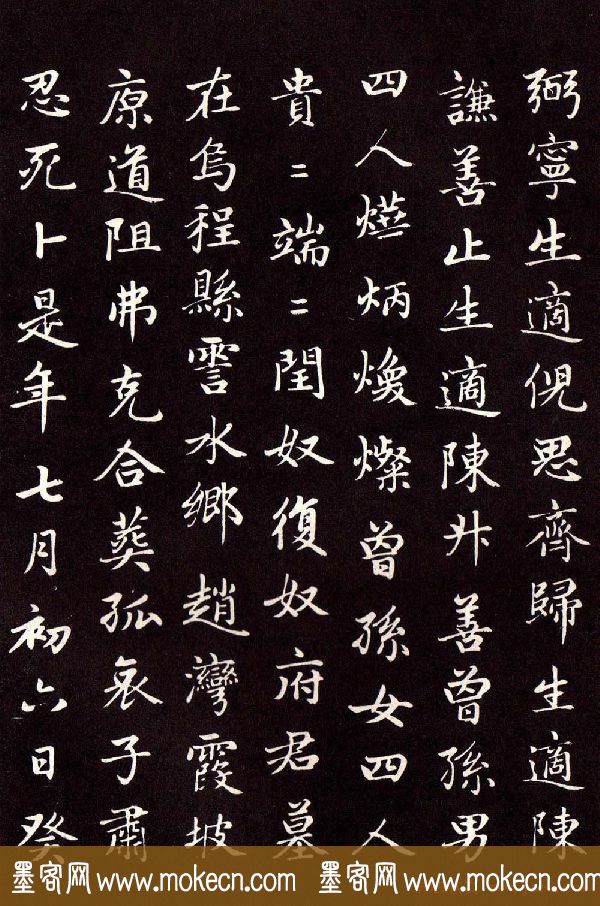 弼寧生適倪思齊歸生適陳
謙善止生適陳井善曾孫男
四人㷼炳煥燦曾孫女四人
貴〻端〻閏奴復奴府君墓
在烏程縣霅水鄉趙灣霞坡
原道阻弗克合葬孤哀子肅
忍死卜是年七月初六日癸
墨客网 www.mokecn.com 墨客网 www.mokecn.com